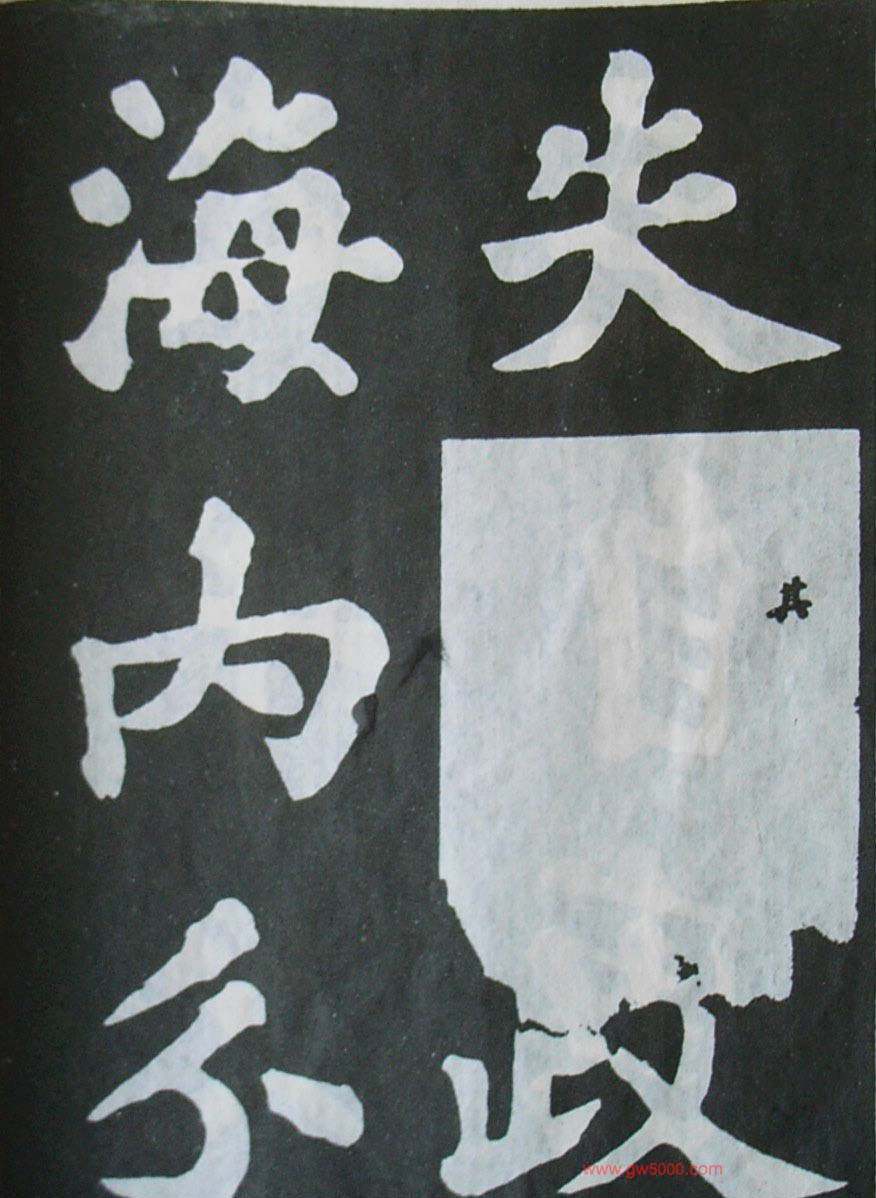 失其政
海内分
www.gw5000.com